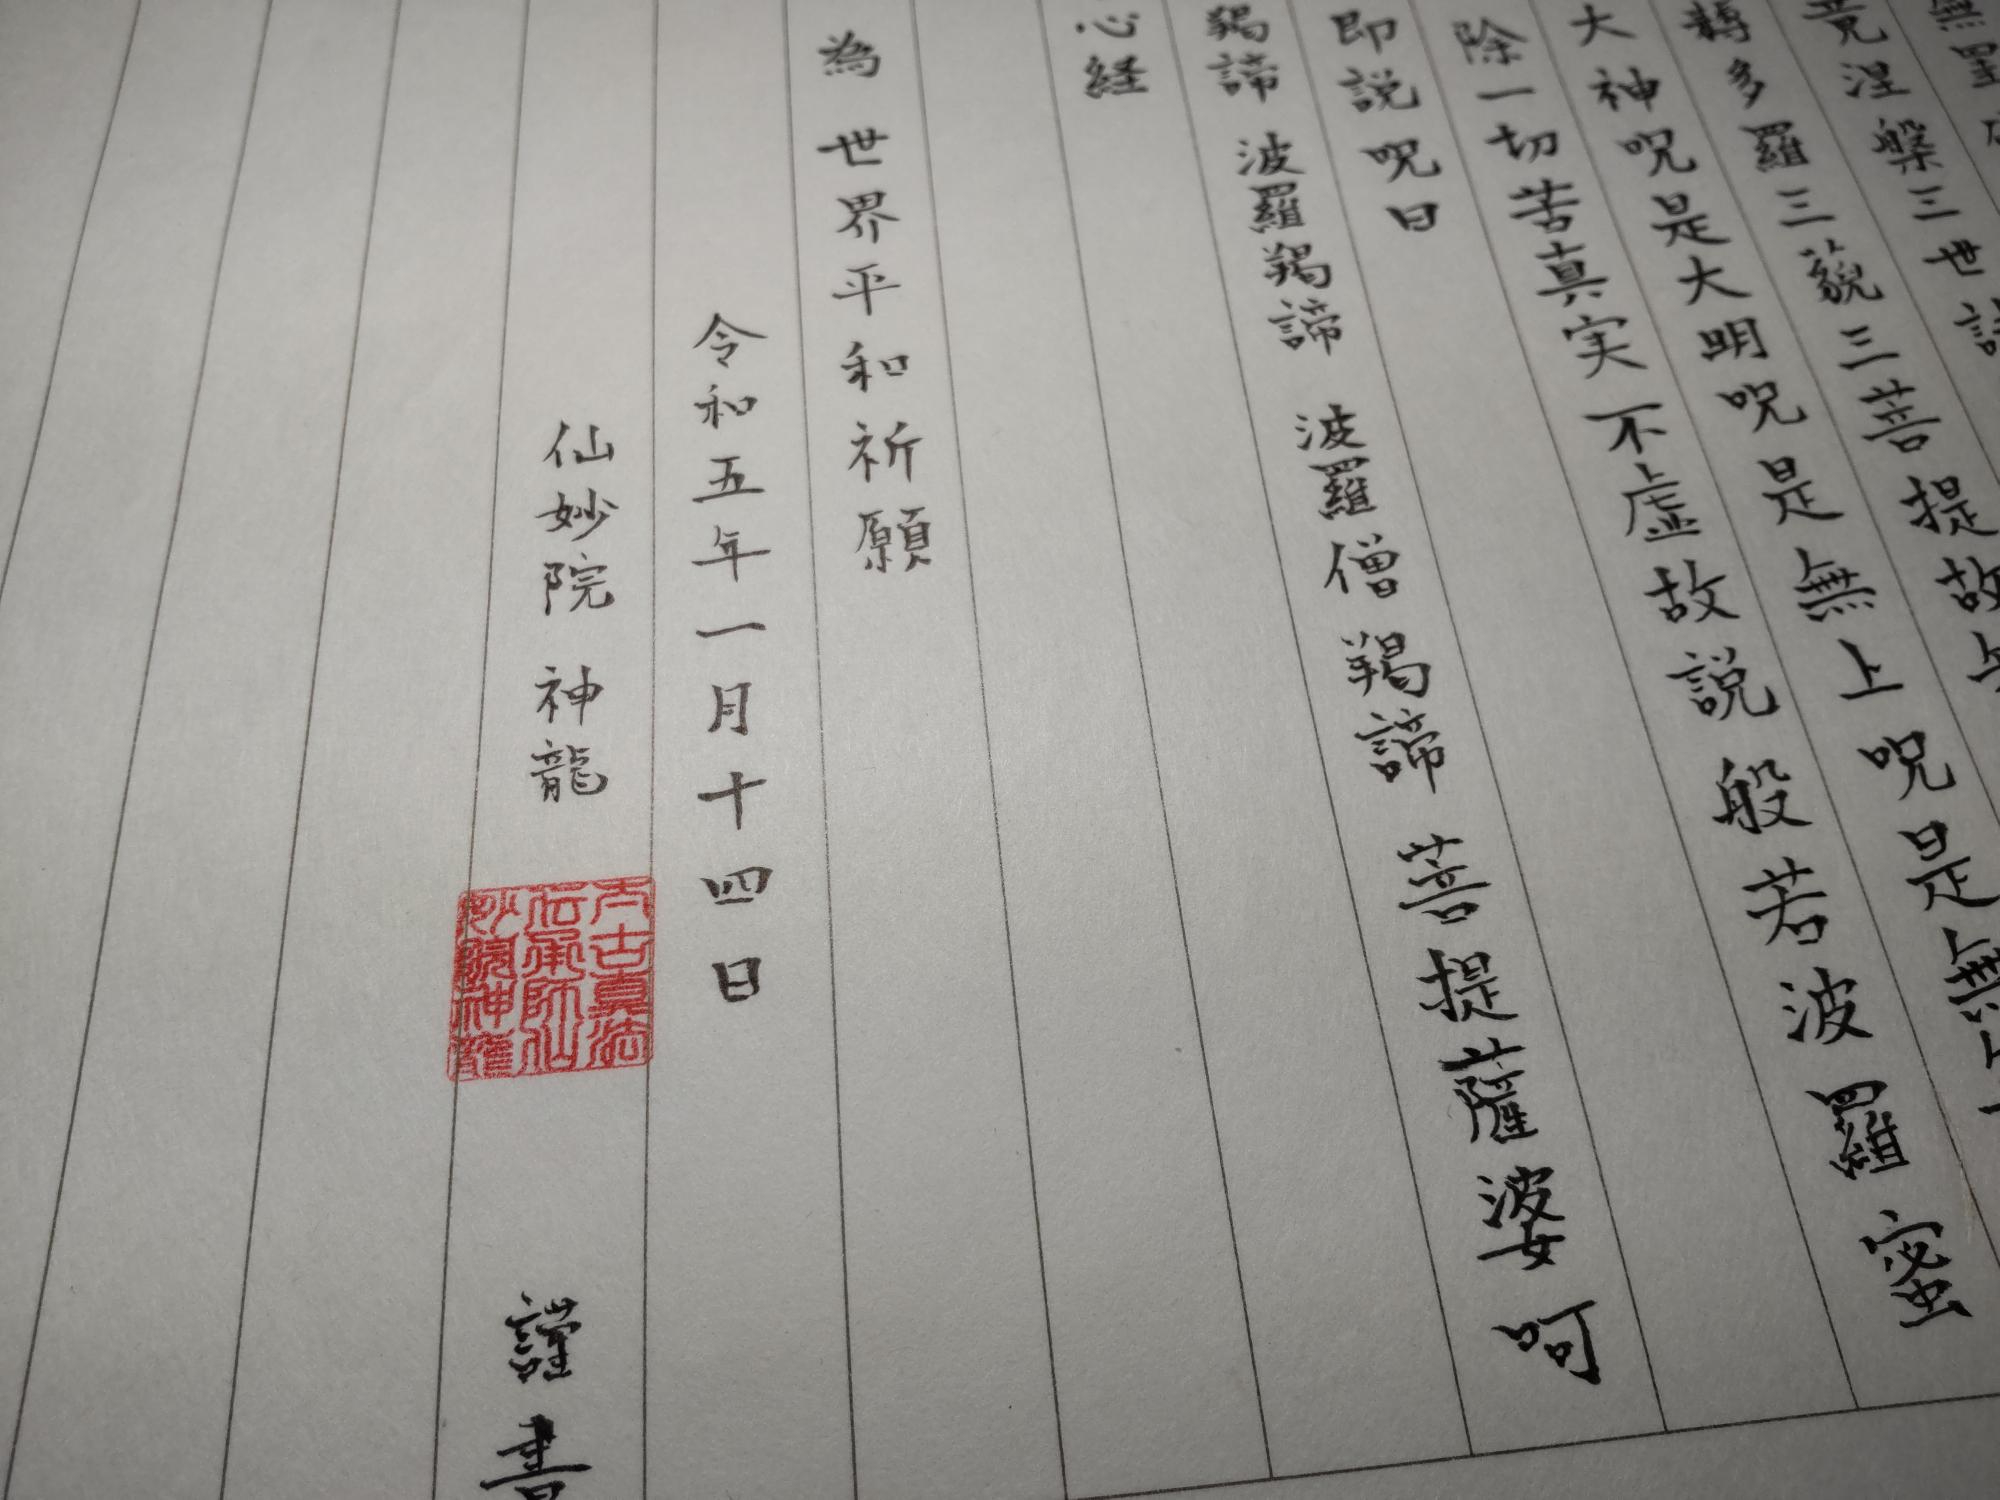 無罣
竟涅槃三世諸
耨多羅三藐三菩提故知
大神呪是大明呪是無上呪是無
除一切苦真実不虚故説般若波羅蜜
即説呪曰
羯諦 波羅羯諦 波羅僧羯諦 菩提薩婆呵
心経
為 世界平和祈願
令和五年一月十四日
仙妙院 神龍 謹書
太古真法
伝承師仙
妙院神龍